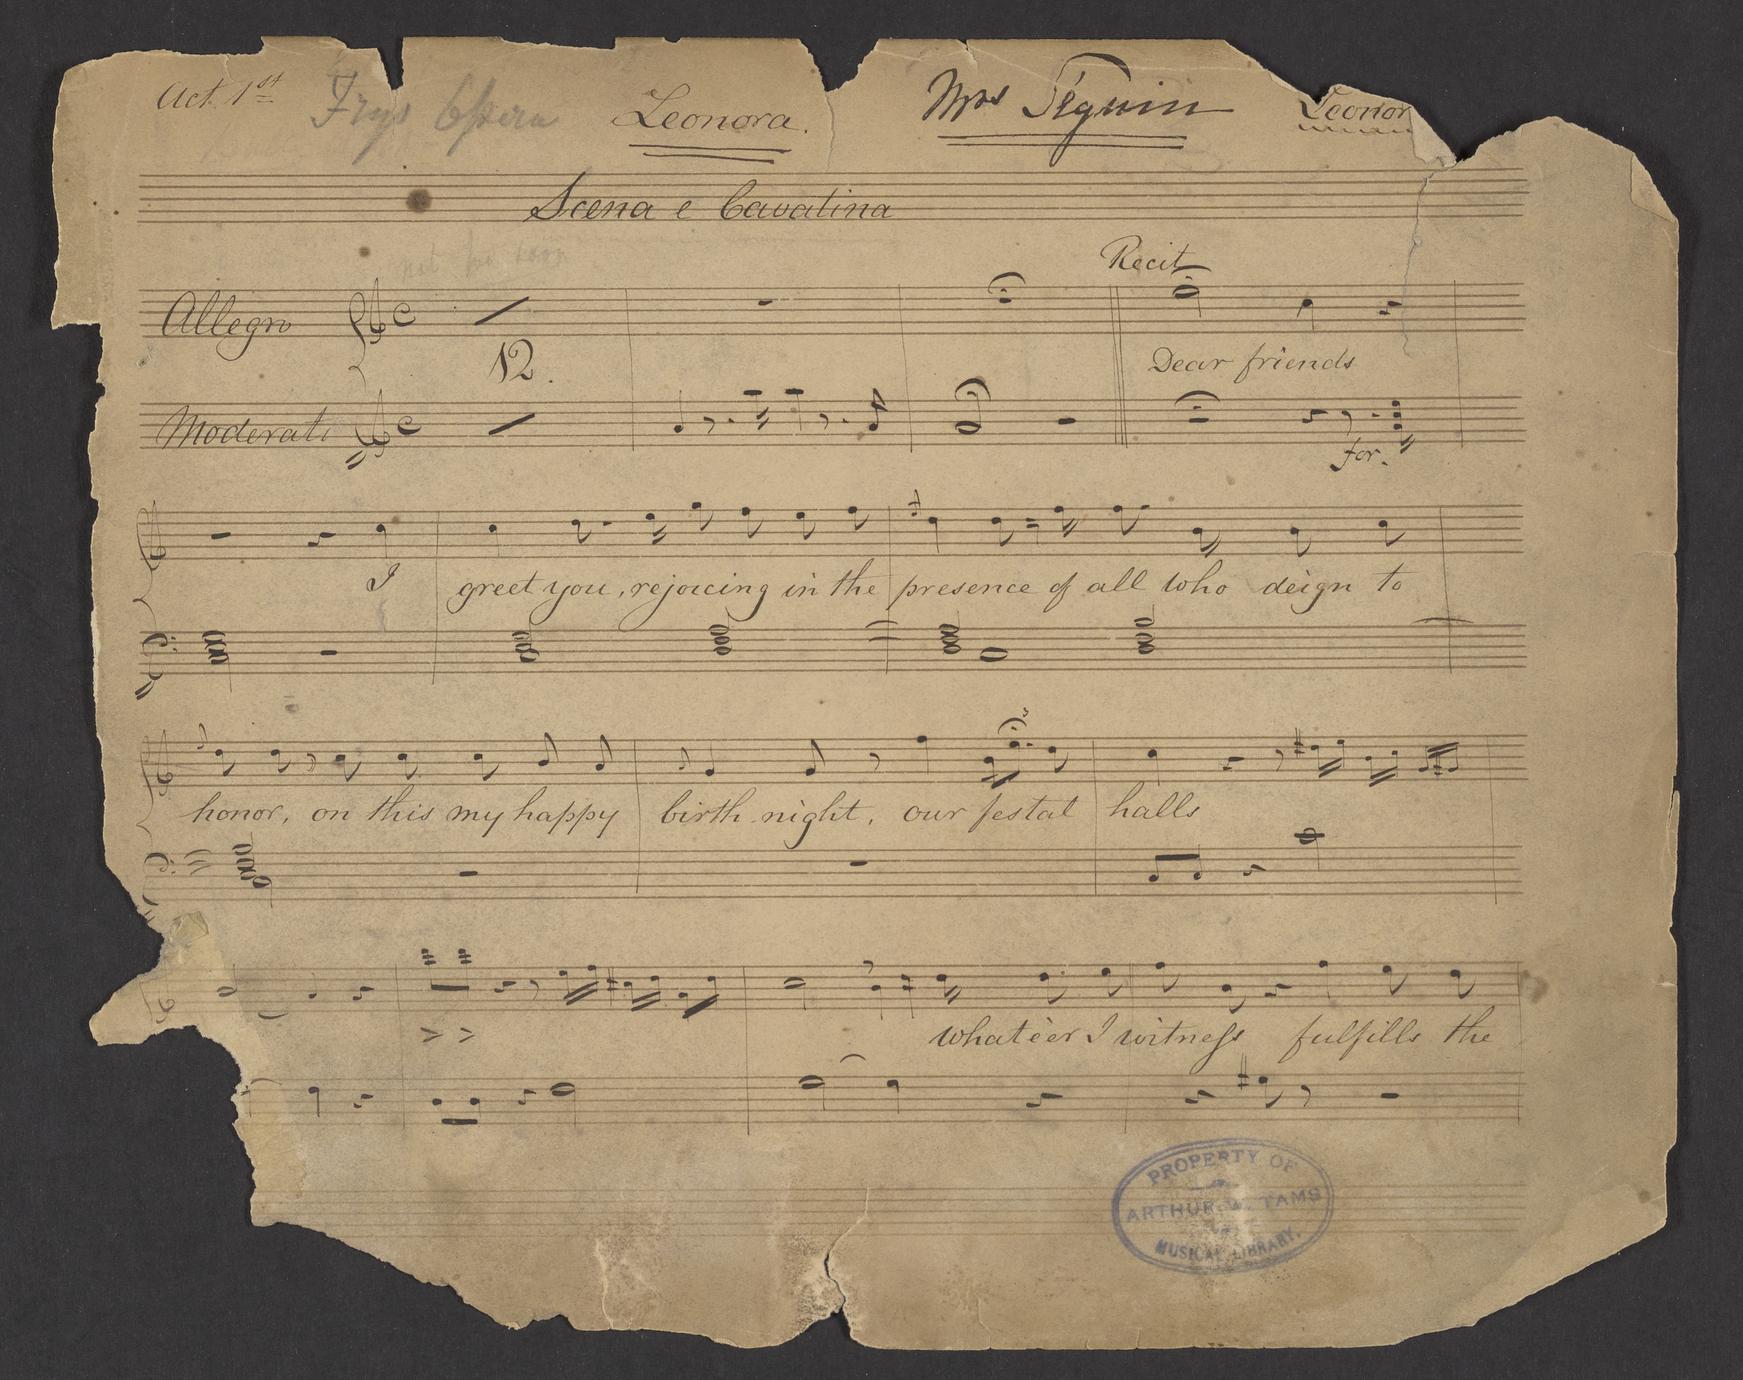 Act 1st Frys Opera Leonora. Mrs Seguin Leonor
Scena e Cavatina
not too soon
Recit
Allegro
12.
Dear friends
Moderato
for.
I greet you, rejoicing in the presence of all who deign to
honor, on this my happy birth night, our festal halls
3
whate'er I witness fulfills the
PROPERTY OF
ARTHUR W. TAMS
MUSICAL LIBRARY.